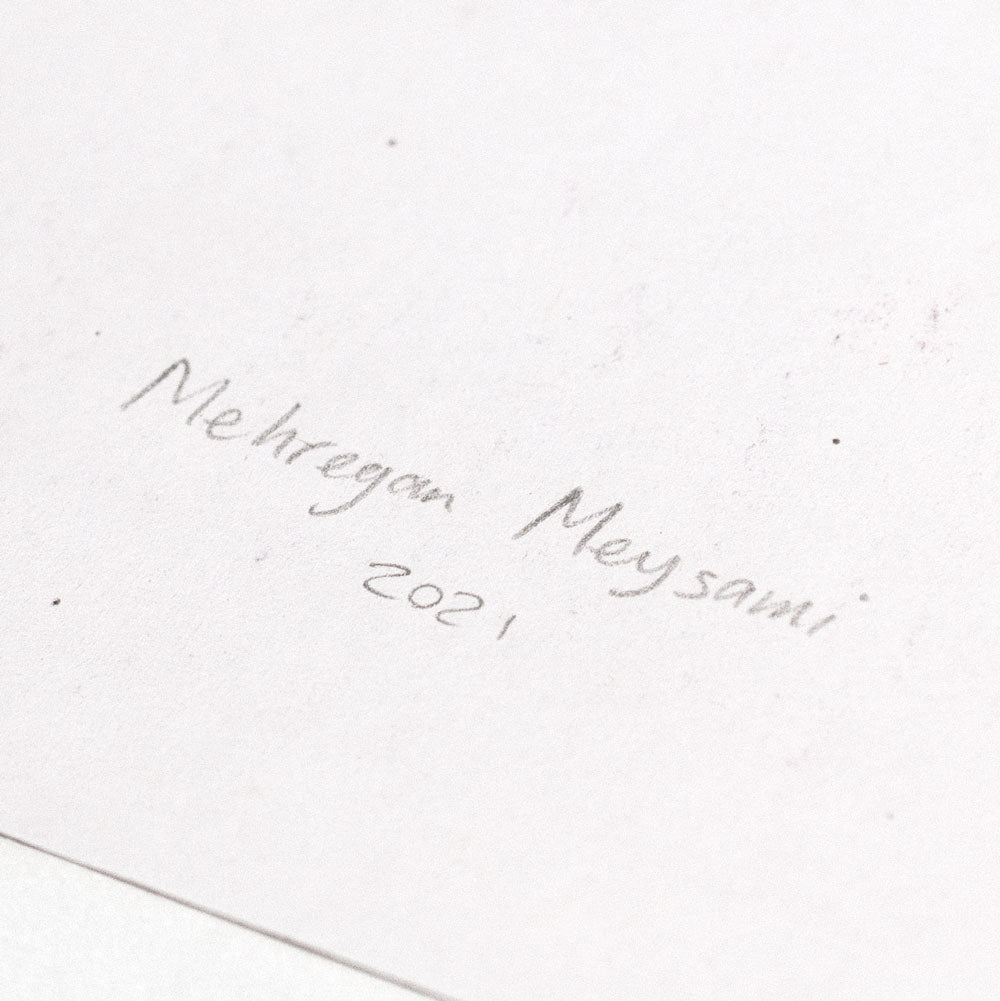 Mehregan Meysami
2021